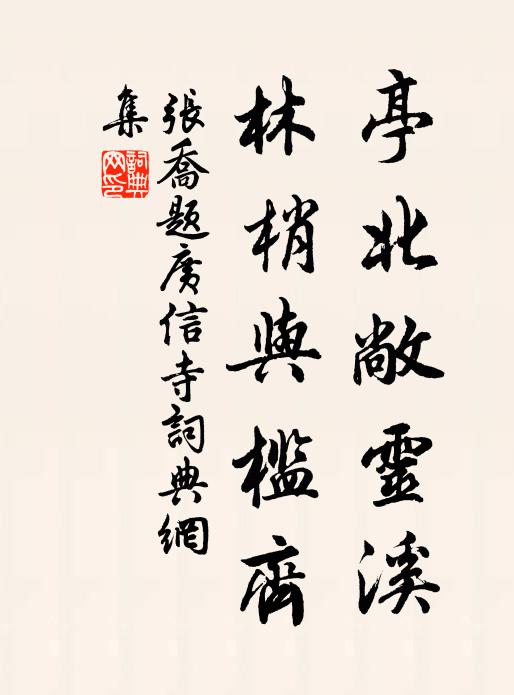 亭北敞靈溪
林梢與檻齊
張喬題廣信寺詞典網
集
詞典網印